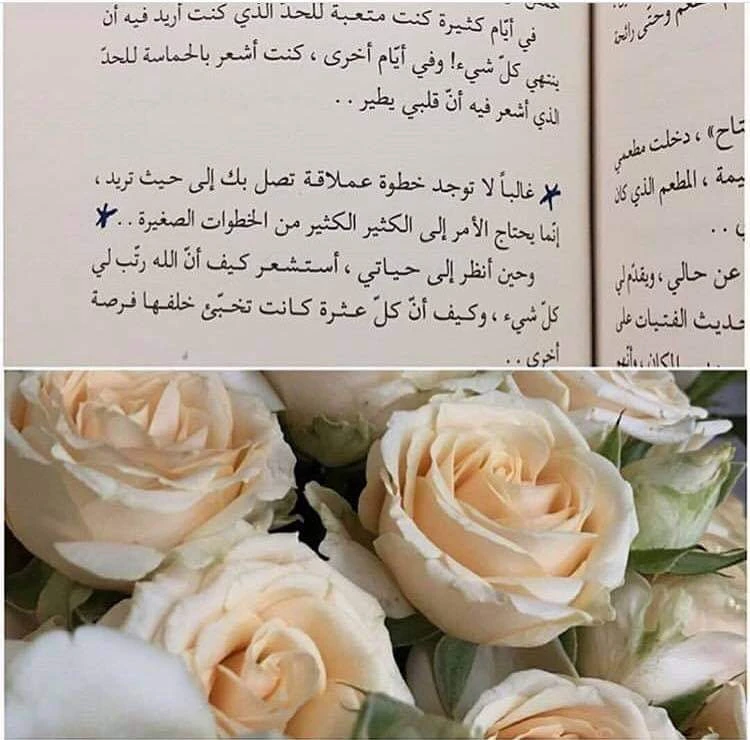 في أيّام كثيرة كنت متعبة للحدّ الذي كنت أريد فيه أن
ينتهي كلّ شيء! وفي أيّام أخرى ، كنت أشعر بالحماسة للحدّ
الذي أشعر فيه أنّ قلبي يطير . .
غالباً لا توجد خطوة عملاقة تصل بك إلى حيث تريد ،
إنّما يحتاج الأمر إلى الكثير الكثير من الخطوات الصغيرة . .
وحين أنظر إلى حياتي ، أستشعر كيف أنّ الله رتّب لي
كلّ شيء ، وكيف أنّ كلّ عثرة كانت تخبّئ خلفها فرصة
أخرى . .
وحتّى رائحة
، دخلت مطعمي
، المطعم الذي كان
عن حالي ، ويقدّم لي
الفتيات على